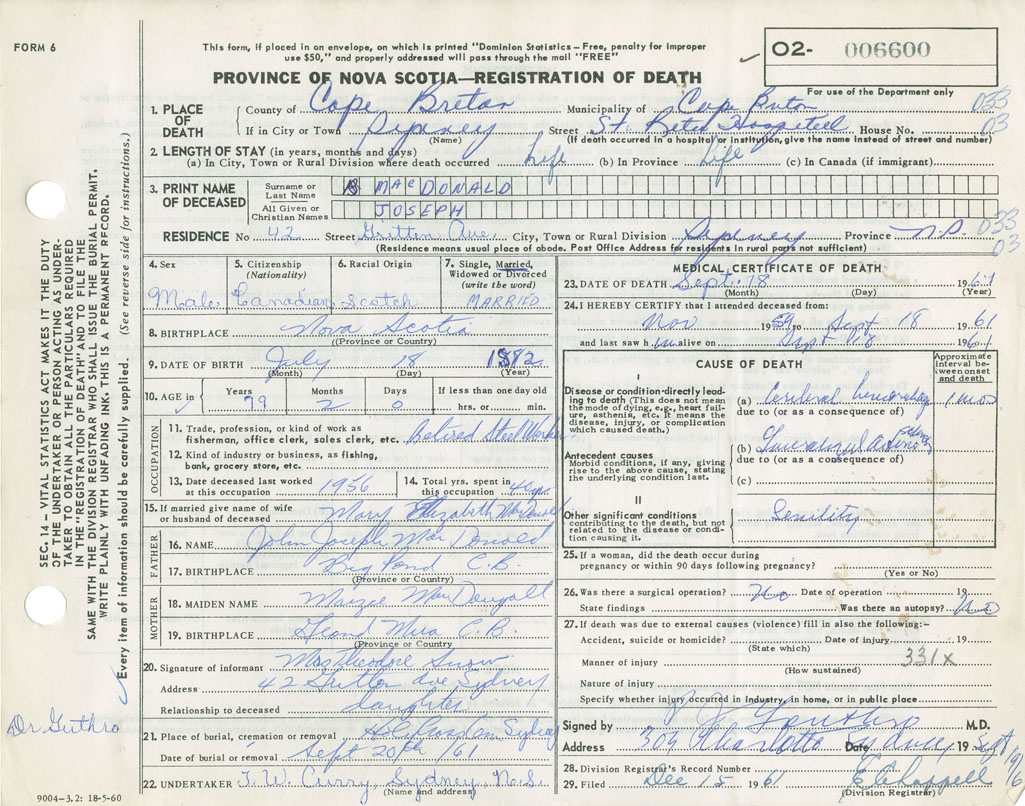 FORM 6
This form, if placed in an envelope, on which is printed "Dominion Statistics - Free, penalty for improper
use $50," and properly addressed will pass through the mail "FREE"
02- 006600
For use of the Department only
PROVINCE OF NOVA SCOTIA—REGISTRATION OF DEATH
SEC. 14 - VITAL STATISTICS ACT MAKES IT THE DUTY
OF THE UNDERTAKER OR PERSON ACTING AS UNDER-
TAKER TO OBTAIN ALL THE PARTICULARS REQUIRED
IN THE "REGISTRATION OF DEATH" AND TO FILE THE
SAME WITH THE DIVISION REGISTRAR WHO SHALL ISSUE THE BURIAL PERMIT.
WRITE PLAINLY WITH UNFADING INK. THIS IS A PERMANENT RECORD.
Every item of information should be carefully supplied. (See reverse side for instructions.)
1. PLACE OF DEATH County of Cape Breton Municipality of Cape Breton 033
If in City or Town Sydney Street St. Hospital House No. 03
(Name) (If death occurred in a hospital or institution, give the name instead of street and number)
2. LENGTH OF STAY (in years, months and days)
(a) In City, Town or Rural Division where death occurred Life (b) In Province Life (c) In Canada (if immigrant)
3. PRINT NAME OF DECEASED Surname or Last Name MacDONALD
All Given or Christian Names JOSEPH
RESIDENCE No 42 Street Ave. City, Town or Rural Division Sydney Province N.S. 033
(Residence means usual place of abode. Post Office Address for residents in rural parts not sufficient) 03
4. Sex 5. Citizenship (Nationality) 6. Racial Origin 7. Single, Married, Widowed or Divorced (write the word)
Male Canadian Scotch MARRIED
8. BIRTHPLACE Nova Scotia
(Province or Country)
9. DATE OF BIRTH July 18 1882
(Month) (Day) (Year)
10. AGE in Years Months Days If less than one day old
79 2 0 hrs. or min.
OCCUPATION
11. Trade, profession, or kind of work as
fisherman, office clerk, sales clerk, etc. Retired Steel Worker
12. Kind of industry or business, as fishing,
bank, grocery store, etc.
13. Date deceased last worked at this occupation 1956 14. Total yrs. spent in this occupation
15. If married give name of wife or husband of deceased Mary Elizabeth MacDonald
FATHER
16. NAME John Joseph MacDonald
17. BIRTHPLACE Big Pond C.B.
(Province or Country)
MOTHER
18. MAIDEN NAME MacDougall
19. BIRTHPLACE Grand Mira C.B.
(Province or Country)
20. Signature of informant Mrs Theodore Snow
Address 42 Ave Sydney
Relationship to deceased daughter
21. Place of burial, cremation or removal Sydney
Date of burial or removal Sept 20th / 61
22. UNDERTAKER T. W. Curry, Sydney N.S.
(Name and address)
Dr Guthro
9004-3.2: 18-5-60
MEDICAL CERTIFICATE OF DEATH
23. DATE OF DEATH Sept. 18 1961
(Month) (Day) (Year)
24. I HEREBY CERTIFY that I attended deceased from:
Nov 1959 to Sept 18 1961
and last saw him alive on Sept 18 1961
CAUSE OF DEATH
Approximate Interval between onset and death
I
Disease or condition directly leading to death (This does not mean the mode of dying, e.g., heart failure, asthenia, etc. It means the disease, injury, or complication which caused death.)
(a) Cerebral hemorrhage 1 mo
due to (or as a consequence of)
Antecedent causes
Morbid conditions, if any, giving rise to the above cause, stating the underlying condition last.
(b) Generalized
due to (or as a consequence of)
(c)
II
Other significant conditions
contributing to the death, but not related to the disease or condition causing it.
Senility
25. If a woman, did the death occur during
pregnancy or within 90 days following pregnancy?
(Yes or No)
26. Was there a surgical operation? No Date of operation 19
State findings Was there an autopsy? No
27. If death was due to external causes (violence) fill in also the following:-
Accident, suicide or homicide? Date of injury 19
(State which)
Manner of injury 331X
(How sustained)
Nature of injury
Specify whether injury occurred in industry, in home, or in public place
Signed by Guthro M.D.
Address 309 Charlotte Sydney Date Sept 19 1961
28. Division Registrar's Record Number
29. Filed Dec 15 1961 E Chappell
(Division Registrar)